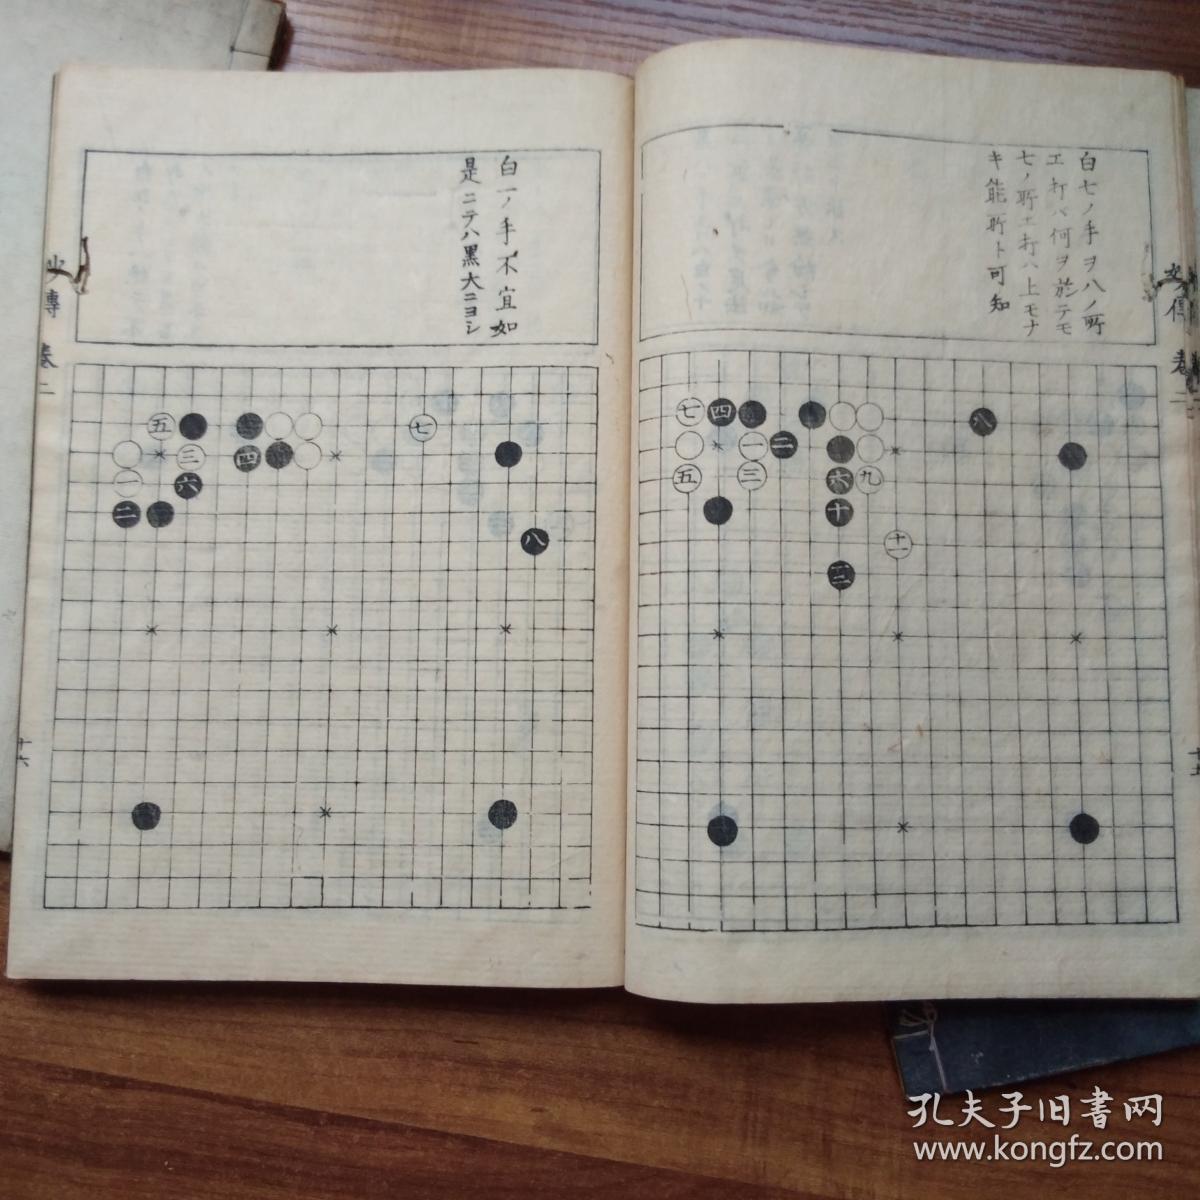 白七ノ手ヲ八ノ所
エ打バ何ヲ於テモ
七ノ所エ打ハ上モナ
キ能所ト可知
七
四
一
二
五
三
六
九
十
十一
十二
八
白一ノ手不宜如
是ニテハ黒大ニヨシ
五
三
四
一
六
二
七
八
妙傳 卷二
十六
孔夫子旧書网
www.kongfz.com